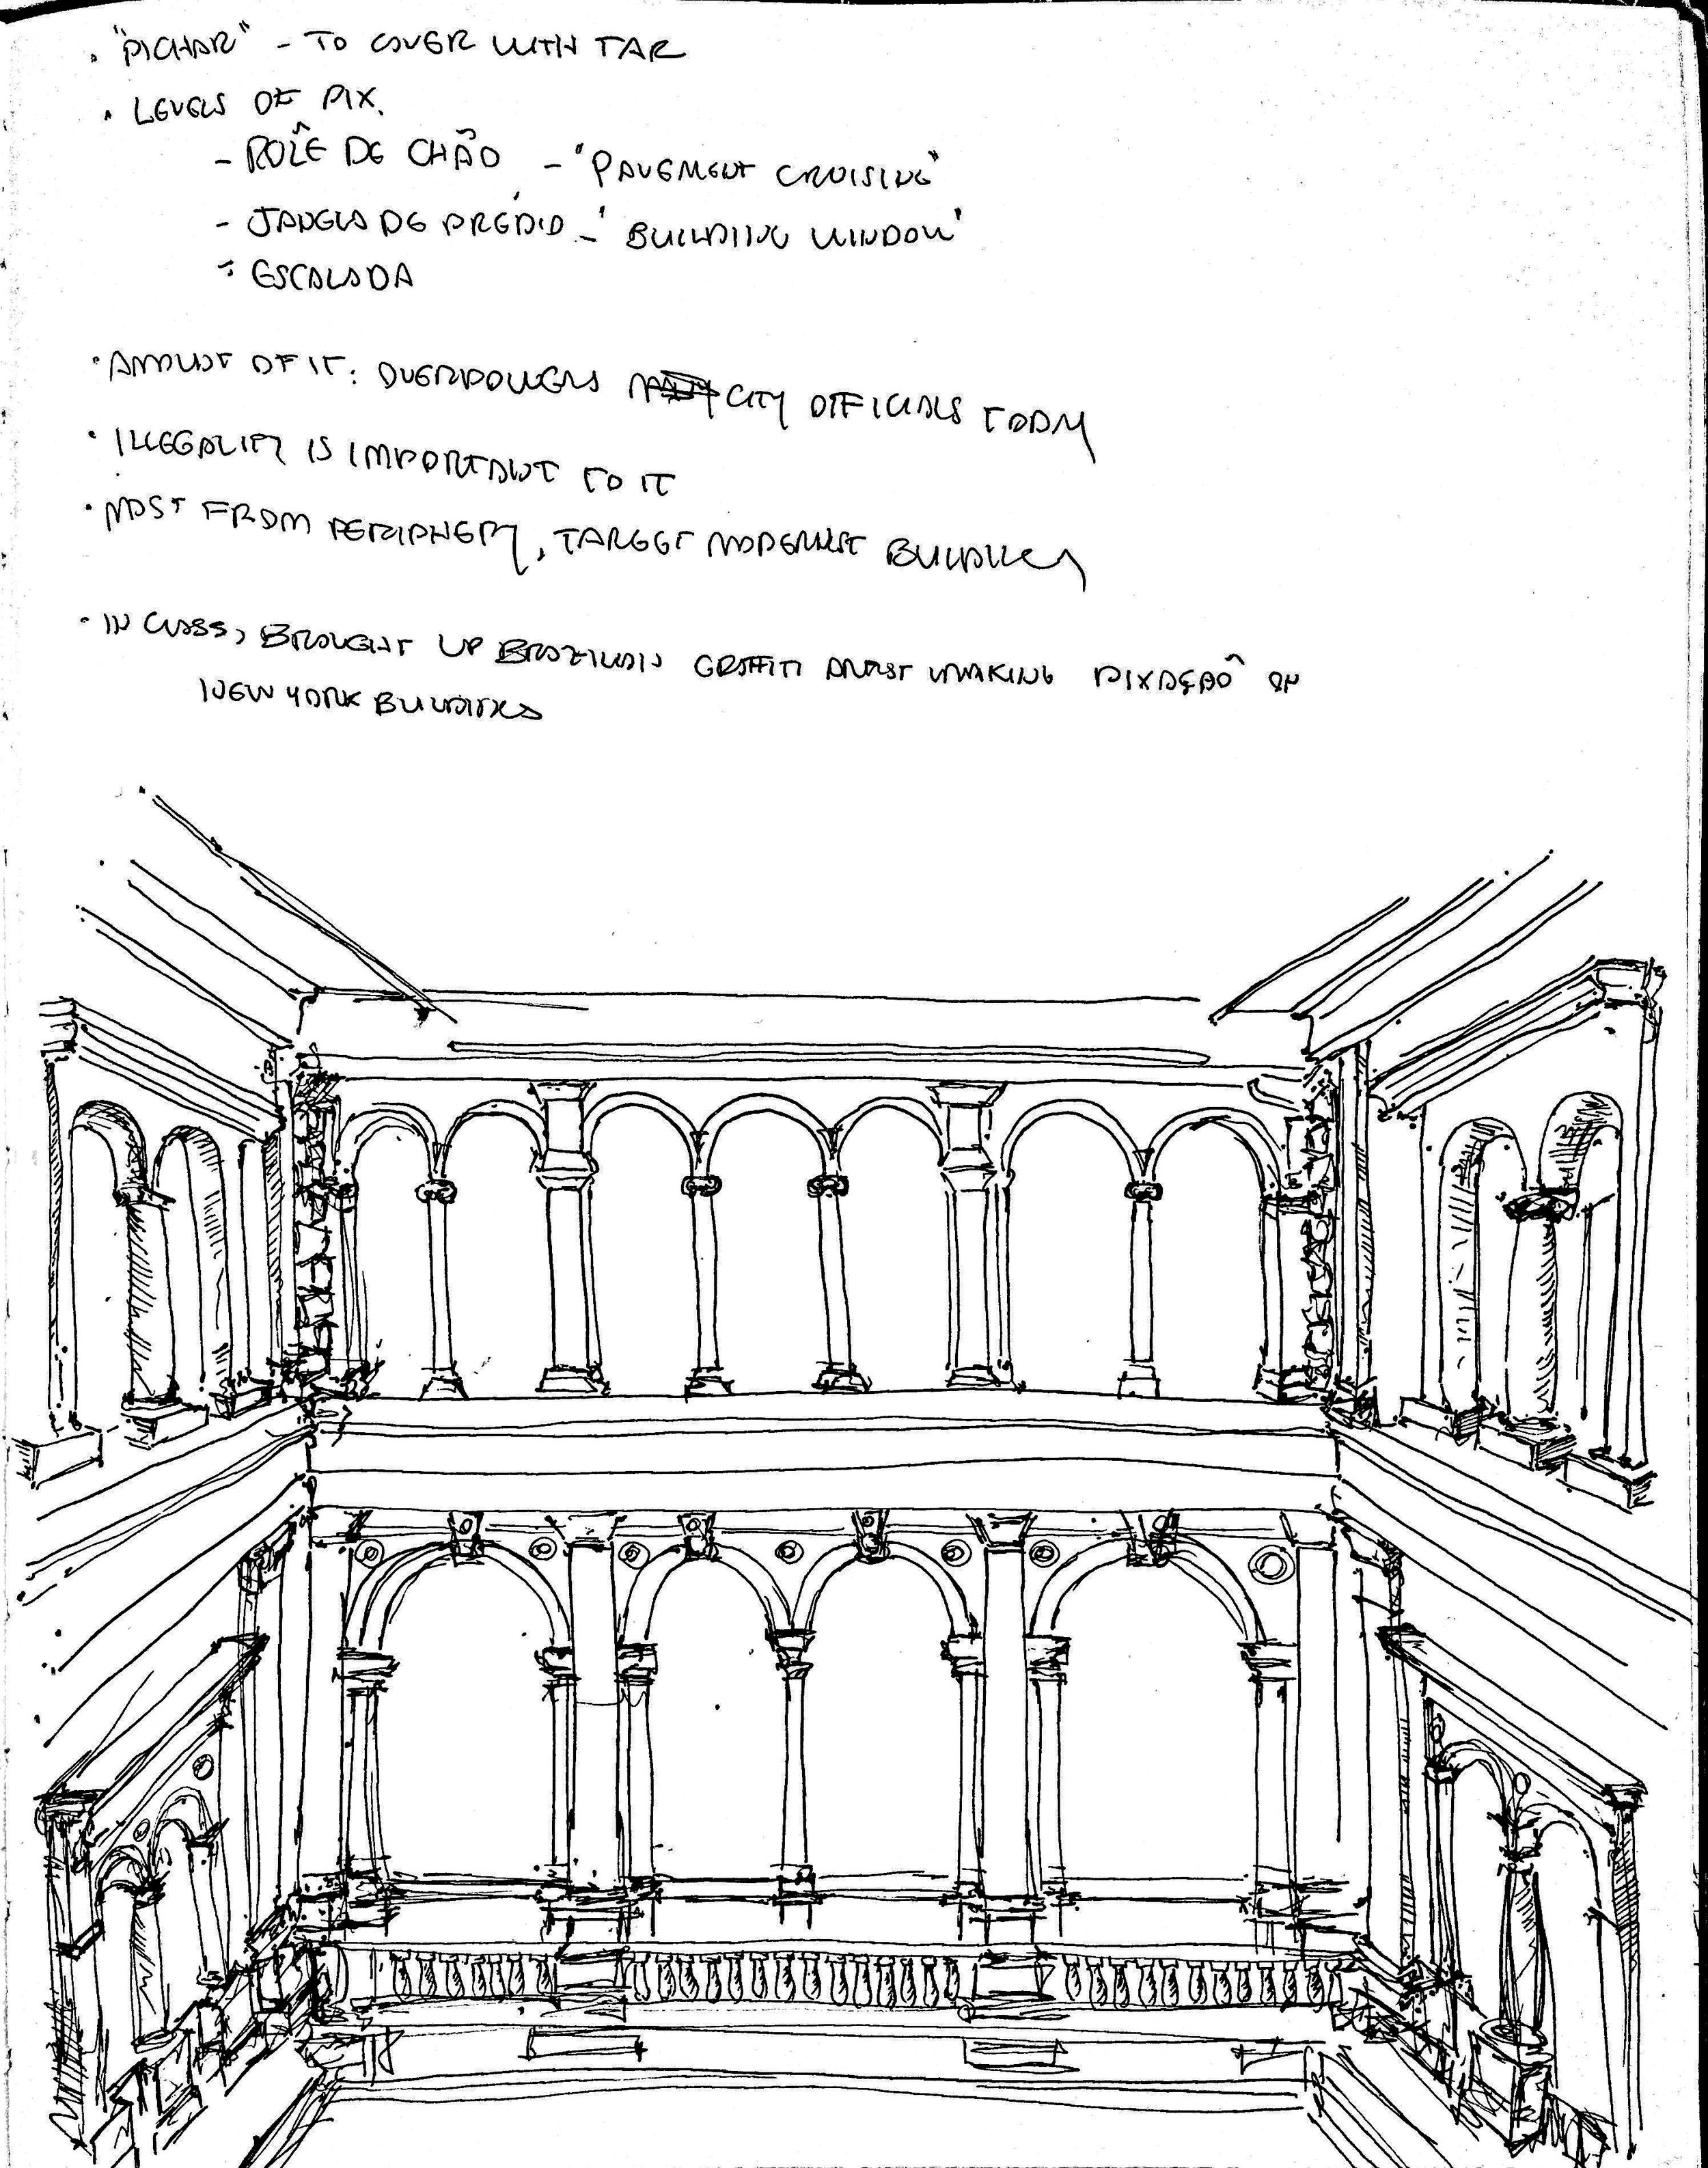 • "PICHAR" - TO COVER WITH TAR
• LEVELS OF PIX.
- ROLÊ DE CHÃO - "PAVEMENT CRUISING"
- JANELA DE PRÉDIO - 'BUILDING WINDOW'
- ESCALADA
• AMOUNT OF IT: OVERPOWERS CITY OFFICIALS TODAY
• ILLEGALITY IS IMPORTANT TO IT
• MOST FROM PERIPHERY, TARGET MODERNIST BUILDINGS
• IN CLASS, BROUGHT UP BRAZILIAN GRAFFITI ARTIST MAKING PIXAÇÃO ON
NEW YORK BUILDINGS